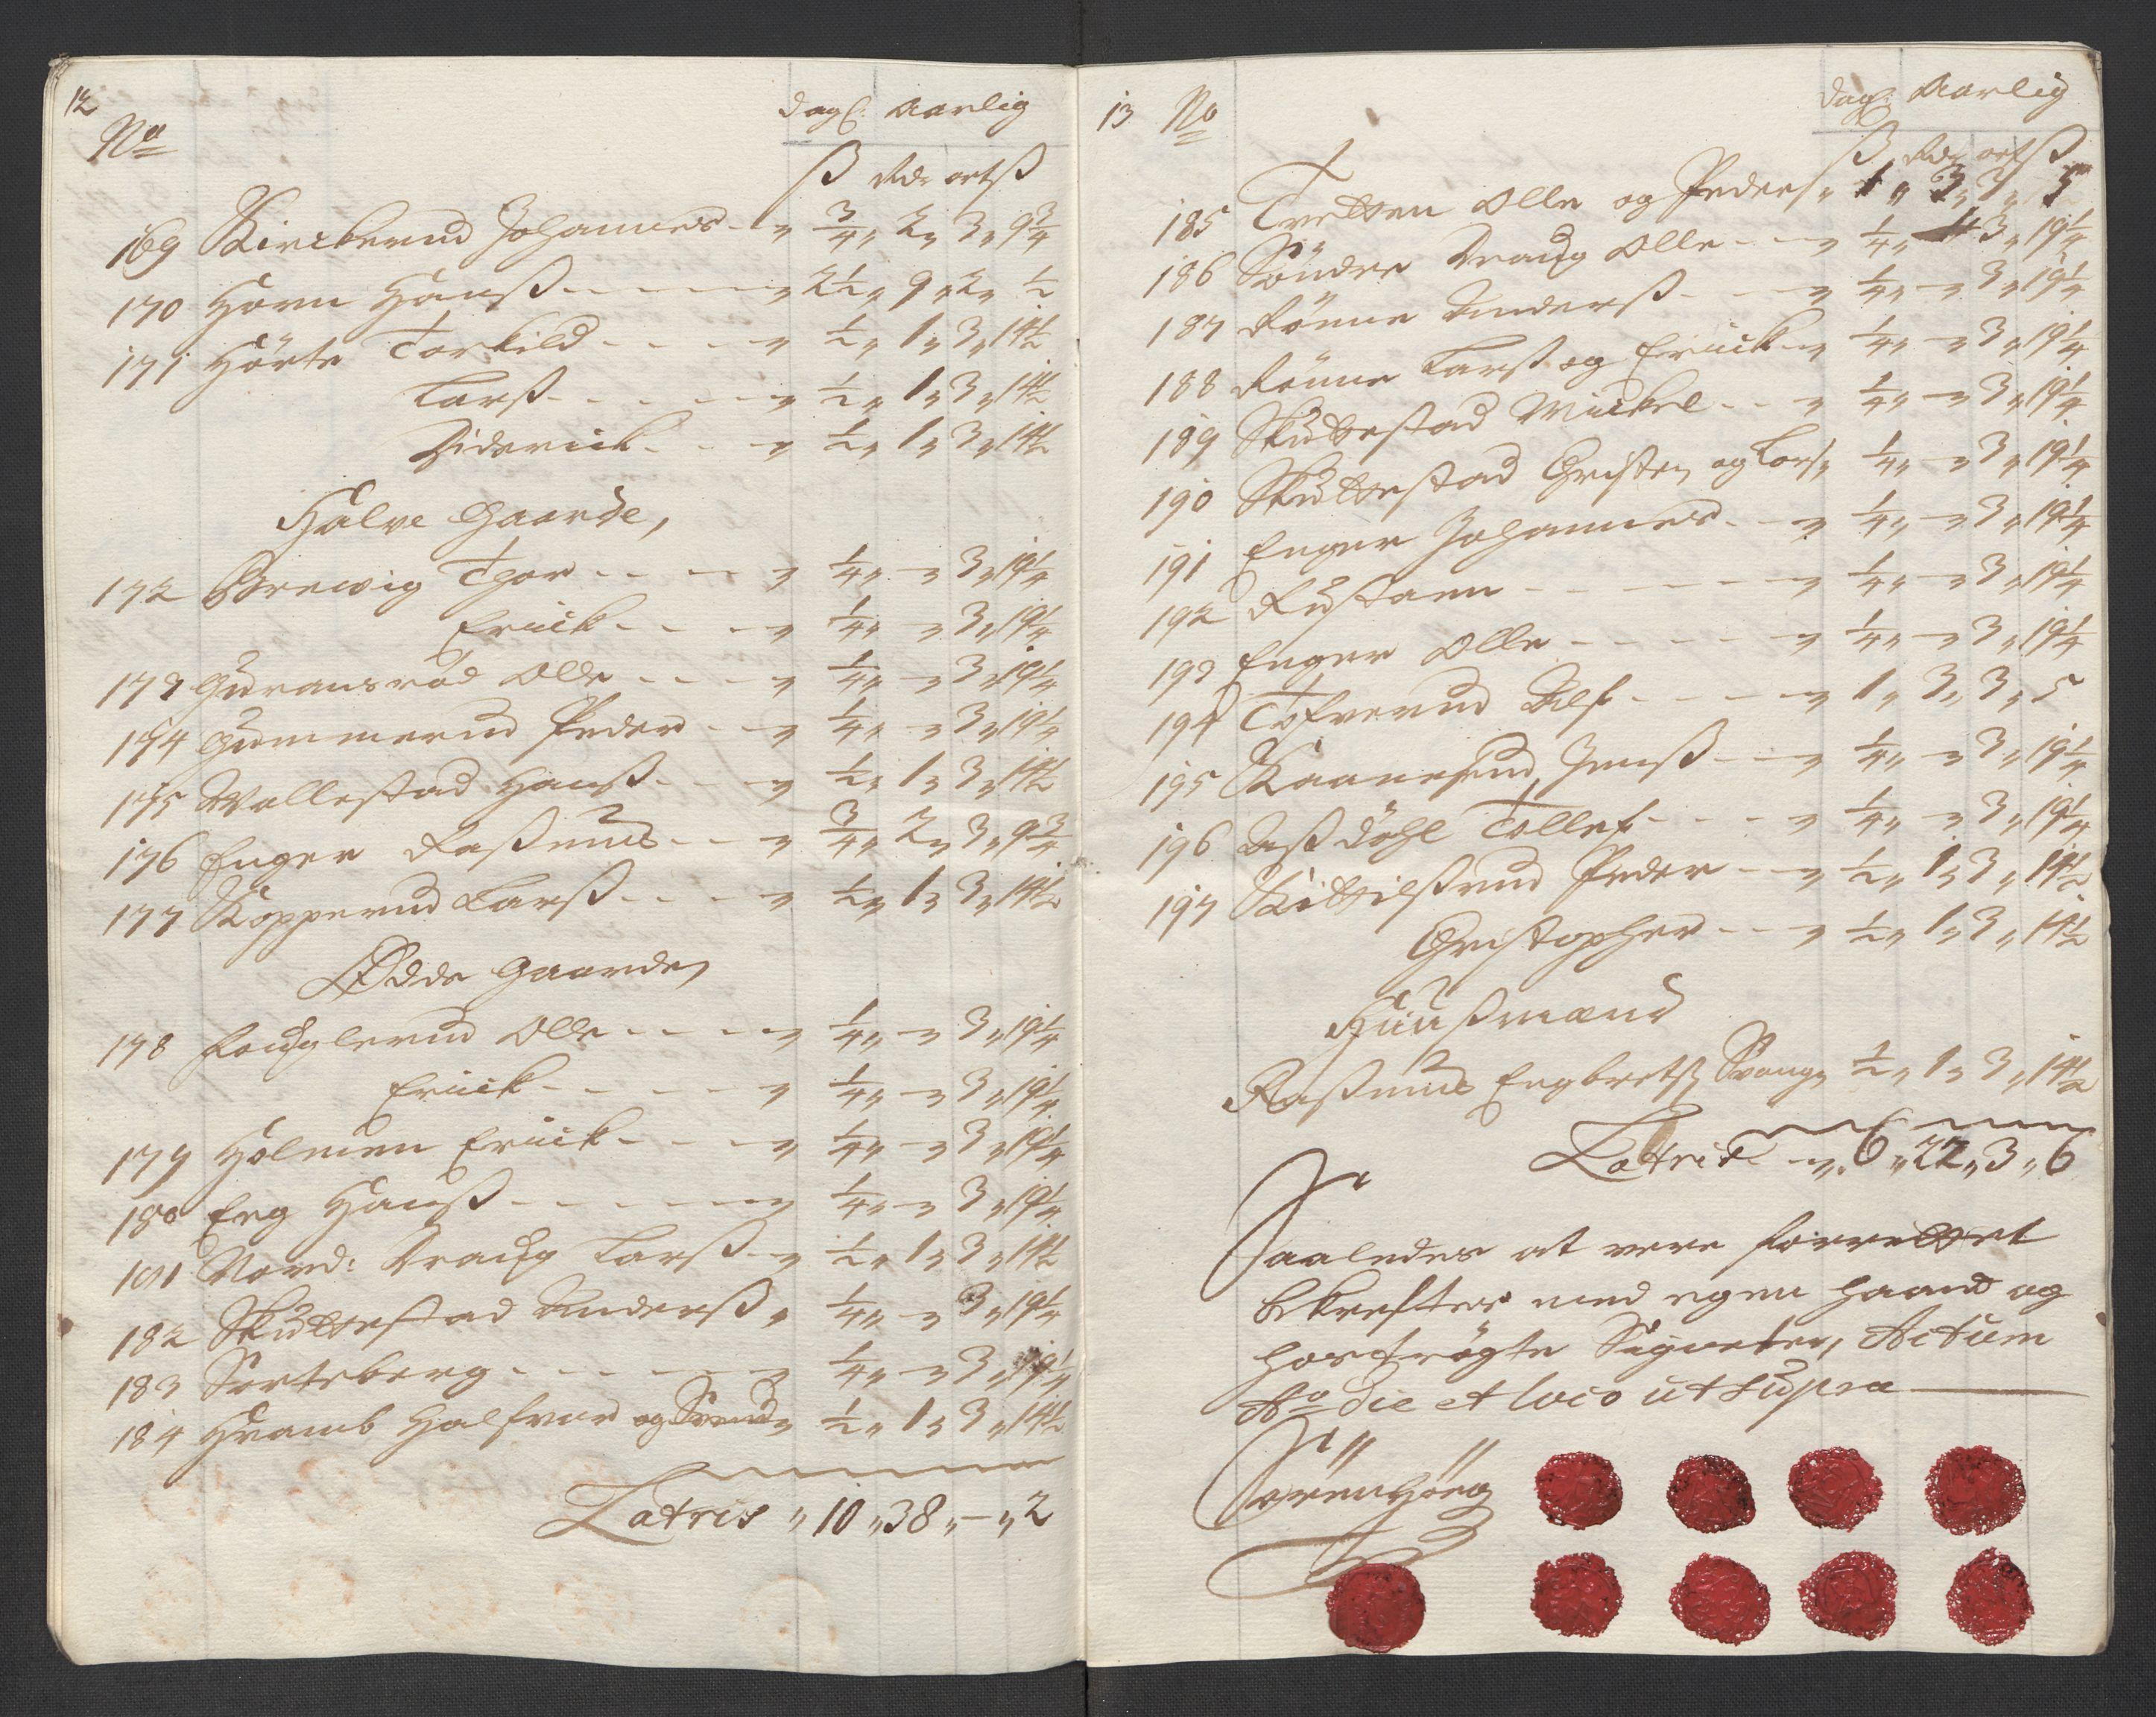 12
No
dagl: Aarlig
ß Rdr ort ß
169 Kinberud Johannes - „ 3/4 „ 2 „ 3 „ 9 3/4
170 Horn Hanß - - - - „ 2 1/2 „ 9 „ 2 „ 1/2
171 Hörte Torkild - - - „ 1/2 „ 1 „ 3 „ 14 1/2
Larß - - - - „ 1/2 „ 1 „ 3 „ 14 1/2
Diderick - - „ 1/2 „ 1 „ 3 „ 14 1/2
Halve Gaarde,
172 Brewig Thor - - - „ 1/4 „ - „ 3 „ 19 1/4
Erick - - - „ 1/4 „ - „ 3 „ 19 1/4
173 Guransrød Olle - - - „ 1/4 „ - „ 3 „ 19 1/4
174 Gummerud Peder - - „ 1/4 „ - „ 3 „ 19 1/4
175 Wallestad Hanß - - „ 1/2 „ 1 „ 3 „ 14 1/2
176 Enger Raßmus - - „ 3/4 „ 2 „ 3 „ 9 3/4
177 Kopperud Larß - - - „ 1/2 „ 1 „ 3 „ 14 1/2
Ødde Gaarde
178 Fouglerud Olle - - - „ 1/4 „ - „ 3 „ 19 1/4
Erick - - - - „ 1/4 „ - „ 3 „ 19 1/4
179 Holmen Erick - - - „ 1/4 „ - „ 3 „ 19 1/4
180 Eeg Hanß - - - - „ 1/4 „ - „ 3 „ 19 1/4
181 Nord: Draug Larß - „ 1/2 „ 1 „ 3 „ 14 1/2
182 Skuttestad Anderß „ 1/4 „ - „ 3 „ 19 1/4
183 Sorteberg - - - - „ 1/4 „ - „ 3 „ 19 1/4
184 Hvamb Halfvor og Svend „ 1/2 „ 1 „ 3 „ 14 1/2
Latris „ 10 „ 38 „ - „ 2
13 No
dagl: Aarlig
ß Rdr ort ß
185 Tvetten Olle og Peder „ 1 „ 3 „ 3 „ 5
186 Söndre Draug Olle - - „ 1/4 „ 3 „ 19 1/4
187 Rönne Anderß - - „ 1/4 „ - „ 3 „ 19 1/4
188 Rönne Larß og Erick - „ 1/4 „ - „ 3 „ 19 1/4
189 Skuttestad Mickel - - „ 1/4 „ - „ 3 „ 19 1/4
190 Skuttestad Christen og Lars „ 1/4 „ - „ 3 „ 19 1/4
191 Enger Johannes - - „ 1/4 „ - „ 3 „ 19 1/4
192 Rustann - - - - „ 1/4 „ - „ 3 „ 19 1/4
193 Enger Olle - - - - „ 1/4 „ - „ 3 „ 19 1/4
194 Tofverud Alf - - - - „ 1 „ 3 „ 3 „ 5
195 Kaanerud, Jenß - - „ 1/4 „ - „ 3 „ 19 1/4
196 Aß Döhl Tollef - - - „ 1/4 „ - „ 3 „ 19 1/4
197 Kittilßrud Peder - - „ 1/2 „ 1 „ 3 „ 14 1/2
Christopher - - „ 1/2 „ 1 „ 3 „ 14 1/2
Huußmænd
Raßmus Engbretß Svang „ 1/2 „ 1 „ 3 „ 14 1/2
Latris - „ 6 „ 22 „ 3 „ 6
Saaledes at vere forrettet
bekrefter med egen haand og
hoströgte Signeter, Actum
Ao die et loco ut supra
Sören Höeg